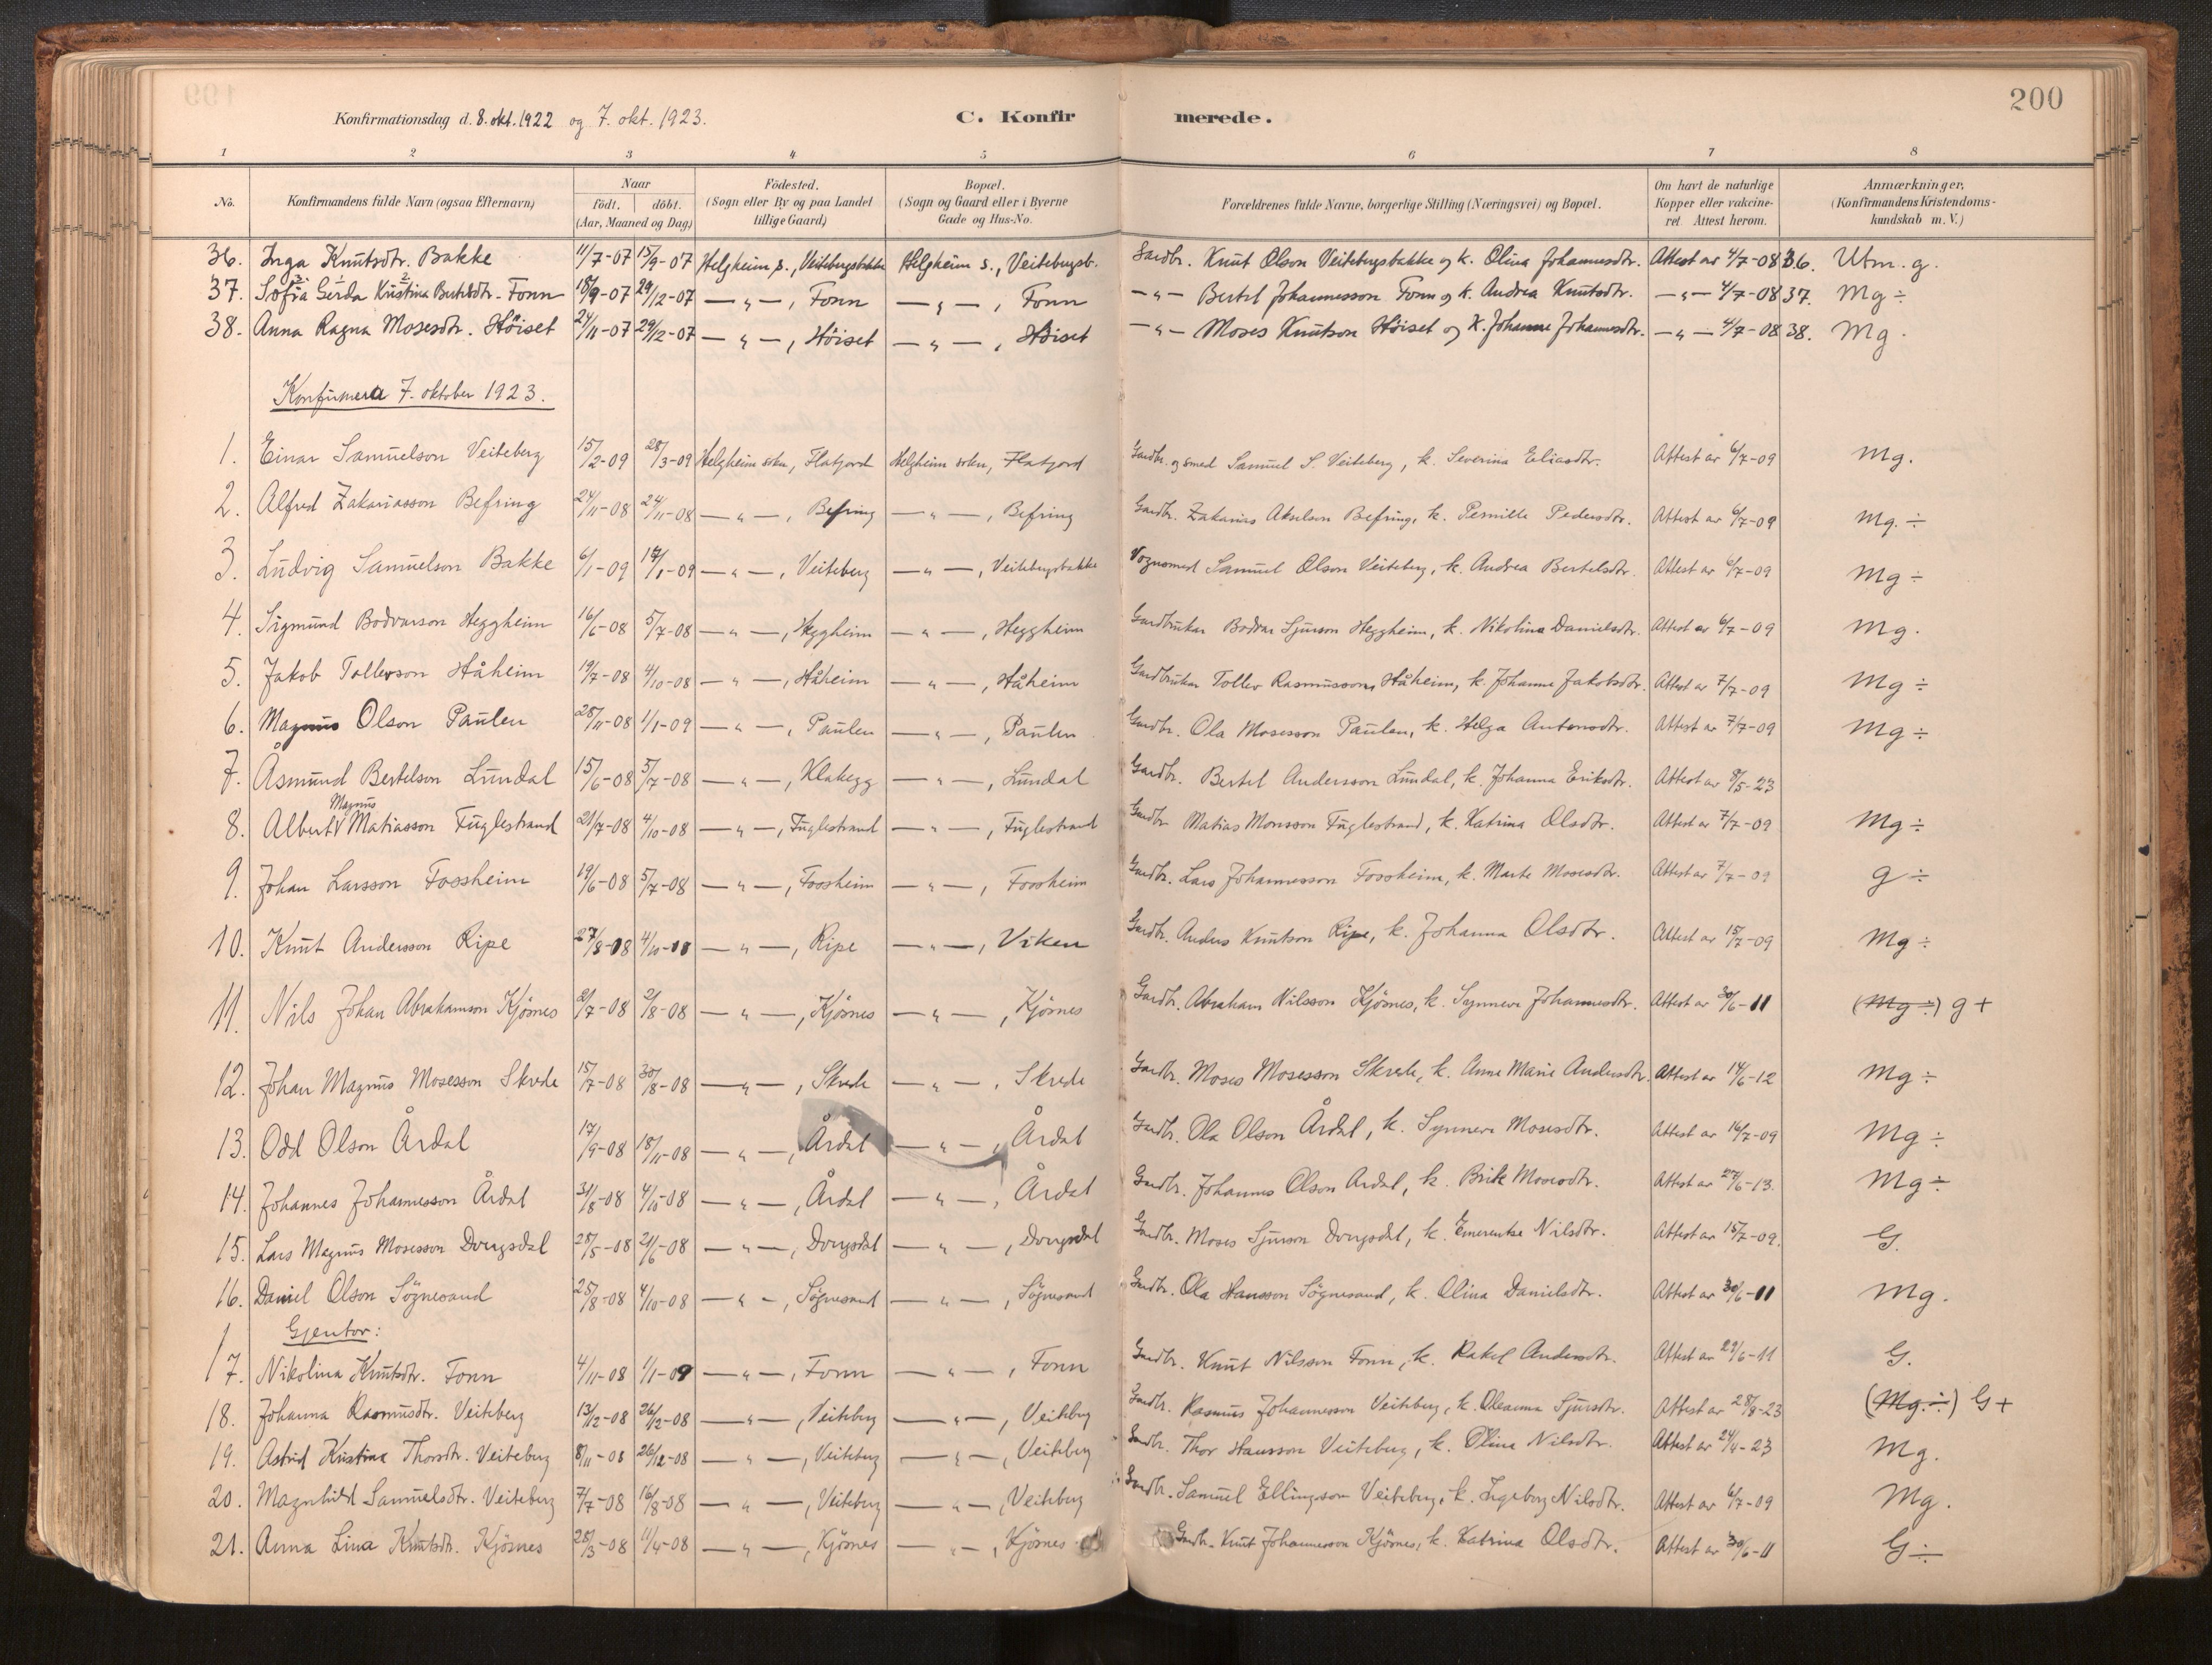 200
Konfirmationsdag d. 8. okt. 1922 og 7. okt. 1923. C. Konfirmerede.
1 2 3 4 5 6 7 8
No. Konfirmandens fulde Navn (ogsaa Efternavn) Naar födt. döbt. (Aar, Maaned og Dag) Födested. (Sogn eller By og paa Landet tillige Gaard) Bopæl. (Sogn og Gaard eller i Byerne Gade og Hus-No. Forældrenes fulde Navne, borgerlige Stilling (Næringsvei) og Bopæl. Om havt de naturlige Kopper eller vakcineret. Attest herom. Anmærkninger, (Konfirmandens Kristendomskundskab m. V.)
36. Inga Knutsdtr. Bakke 11/7-07 15/9-07 Helgheim s., Veitebergsbakke Helgheim s., Veitebergsb. Gardbr. Knut Olson Veitebergsbakke og k. Olina Johannesdtr. Attest av 4/7-08 36. Utm. g.
37. Sofia Gerda Kristina Bertelsdtr. Fonn 18/9-07 29/12-07 — " —, Fonn — " —, Fonn — " — Bertel Johannesson Fonn og k. Andrea Knutsdtr. — " — 4/7-08 37. Mg ÷
38. Anna Ragna Mosesdtr. Höiset 24/11-07 29/12-07 — " —, Höiset — " —, Höiset — " — Moses Knutson Höiset og k. Johanne Johannesdtr. — " — 4/7-08 38. Mg.
Konfirmera 7. oktober 1923.
1. Einar Samuelson Veiteberg 15/2-09 28/3-09 Helgheim sokn, Flatjord Helgheim sokn, Flatjord Gardbr. og smed Samuel S. Veiteberg, k. Severina Eliasdtr. Attest av 6/7-09 Mg.
2. Alfred Zakariasson Befring 24/11-08 24/11-08 — " —, Befring — " —, Befring Gardbr. Zakarias Akselson Befring, k. Pernille Pedersdtr. Attest av 6/7-09 Mg. ÷
3. Ludvig Samuelson Bakke 6/1-09 17/1-09 — " —, Veiteberg — " —, Veitebergsbakke Vognsmed Samuel Olson Veiteberg, k. Andrea Bertelsdtr. Attest av 6/7-09 Mg ÷
4. Sigmund Bodvarson Heggheim 16/6-08 5/7-08 — " —, Heggheim — " —, Heggheim Gardbrukar Bodvar Sjurson Heggheim, k. Nikolina Danielsdtr. Attest av 6/7-09 Mg.
5. Jakob Tollevson Håheim 19/7-08 4/10-08 — " —, Håheim — " —, Håheim Gardbrukar Tollev Rasmusson Håheim, k. Johanne Jakobsdtr. Attest av 7/7-09 Mg ÷
6. Magnus Olson Paulen 28/11-08 1/1-09 — " —, Paulen — " —, Paulen Gardbr. Ola Mosesson Paulen, k. Helga Antonsdtr. Attest av 7/7-09 Mg ÷
7. Åsmund Bertelson Lundal 15/6-08 5/7-08 — " —, Klakegg — " —, Lundal Gardbr. Bertel Andersson Lundal, k. Johanna Eriksdtr. Attest av 8/5-23
8. Albert Magnus Matiasson Fuglestrand 21/7-08 4/10-08 — " —, Fuglestrand — " —, Fuglestrand Gardbr. Matias Monsson Fuglestrand, k. Katrina Olsdtr. Attest av 7/7-09 Mg ÷
9. Johan Larsson Fossheim 19/6-08 5/7-08 — " —, Fossheim — " —, Fossheim Gardbr. Lars Johannesson Fossheim, k. Marte Mosesdtr. Attest av 7/7-09 g ÷
10. Knut Andersson Ripe 27/8-08 4/10-08 — " —, Ripe — " —, Viken Gardbr. Anders Knutson Ripe, k. Johanna Olsdtr. Attest av 15/7-09 Mg ÷
11. Nils Johan Abrahamson Kjösnes 2/7-08 2/8-08 — " —, Kjösnes — " —, Kjösnes Gardbr. Abraham Nilsson Kjösnes, k. Synneve Johannesdtr. Attest av 30/6-11 (Mg ÷) g +
12. Johan Magnus Mosesson Skrede 15/7-08 30/8-08 — " —, Skrede — " —, Skrede Gardbr. Moses Mosesson Skrede, k. Anne Marie Andersdtr. Attest av 14/6-12 Mg ÷
13. Odd Olson Årdal 17/9-08 18/11-08 — " —, Årdal — " —, Årdal Gardbr. Ola Olson Årdal, k. Synneve Mosesdtr. Attest av 16/7-09 Mg ÷
14. Johannes Johannesson Årdal 31/8-08 4/10-08 — " —, Årdal — " —, Årdal Gardbr. Johannes Olson Årdal, k. Brite Mosesdtr. Attest av 27/6-13. Mg ÷
15. Lars Magnus Mosesson Dvergsdal 28/5-08 21/6-08 — " —, Dvergsdal — " —, Dvergsdal Gardbr. Moses Sjurson Dvergsdal, k. Emerentse Nilsdtr. Attest av 15/7-09. G.
16. Daniel Olson Sögnesand 25/8-08 4/10-08 — " —, Sögnesand — " —, Sögnesand Gardbr. Ola Hansson Sögnesand, k. Olina Danielsdtr. Attest av 30/6-11 Mg.
Gjentor:
17. Nikolina Knutsdtr. Fonn 4/11-08 1/1-09 — " —, Fonn — " —, Fonn Gardbr. Knut Nilsson Fonn, k. Rakel Andersdtr. Attest av 29/6-11 G.
18. Johanna Rasmusdtr. Veiteberg 13/2-08 26/2-08 — " —, Veiteberg — " —, Veiteberg Gardbr. Rasmus Johannesson Veiteberg, k. Oleanna Sjursdtr. Attest av 28/8-23 (Mg. ÷) G +
19. Astrid Kristina Thorsdtr. Veiteberg 8/11-08 26/12-08 — " —, Veiteberg — " —, Veiteberg Gardbr. Thor Hansson Veiteberg, k. Olina Nilsdtr. Attest av 24/4-23 Mg.
20. Magnhild Samuelsdtr. Veiteberg 7/7-08 16/8-08 — " —, Veiteberg — " —, Veiteberg Gardbr. Samuel Ellingsson Veiteberg, k. Ingeborg Nilsdtr. Attest av 6/7-09 Mg.
21. Anna Lina Knutsdtr. Kjösnes 28/3-08 11/4-08 — " —, Kjösnes — " —, Kjösnes Gardbr. Knut Johannesson Kjösnes, k. Katrina Olsdtr. Attest av 30/6-11 G ÷